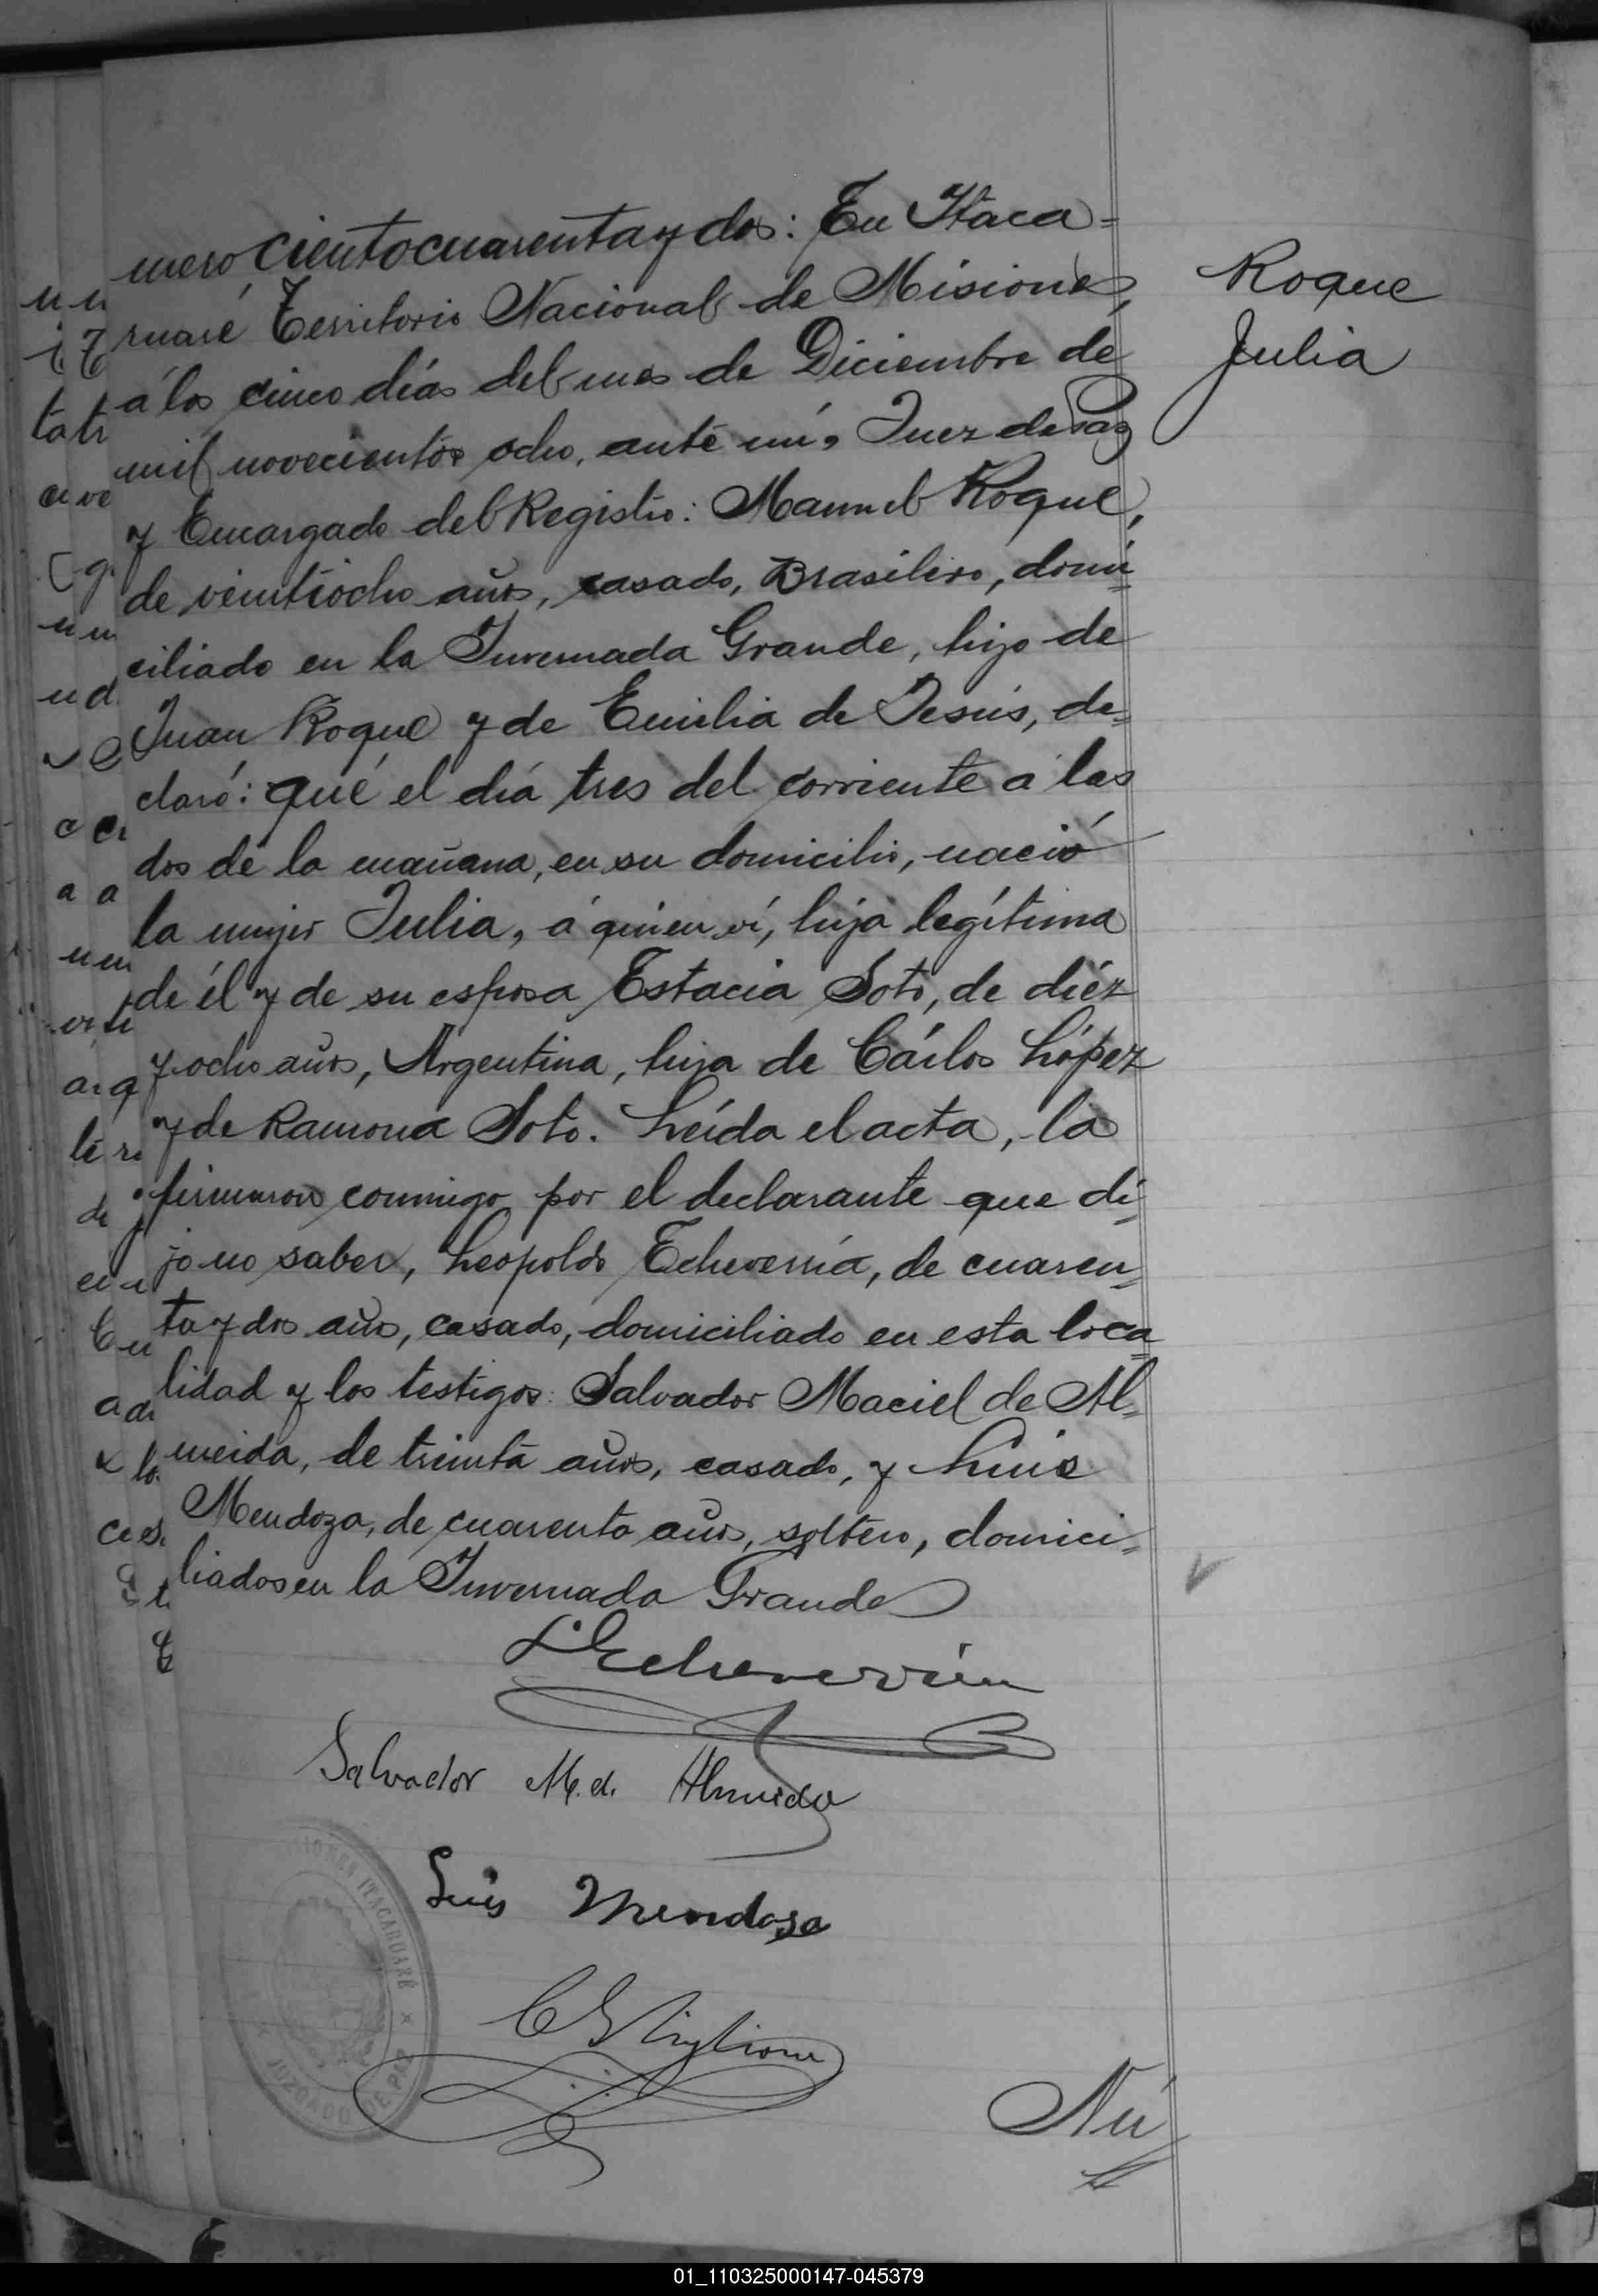 mero cientocuarentaydos: En Itaca=
ruaré Territorio Nacional de Misiones,
á los cinco días del mes de Diciembre de
mil novecientos ocho, ante mí, Juez de Paz
y Encargado del Registro: Manuel Roque,
de veintiocho años, casado, Brasilero, domi=
ciliado en la Invernada Grande, hijo de
Juan Roque y de Emilia de Jesús, de=
claró: que el día tres del corriente a las
dos de la mañana, en su domicilio, nació
la mujer Julia, á quien ví, hija legítima
de él y de su esposa Estacia Soto, de diéz
y ocho años, Argentina, hija de Cárlos López
y de Ramona Soto. Leída el acta, la
firmaron conmigo por el declarante que di=
jo no saber, Leopoldo Echeverría, de cuaren=
ta y dos años, casado, domiciliado en esta loca=
lidad y los testigos: Salvador Maciel de Al=
meida, de treinta años, casado, y Luis
Mendoza, de cuarenta años, soltero, domici=
liados en la Invernada Grande
L. Echeverría
Salvador M. d. Almeida
Luis Mendoza
Nú=
Roque
Julia
ITACARUARÉ
JUZGADO DE PAZ
01_110325000147-045379